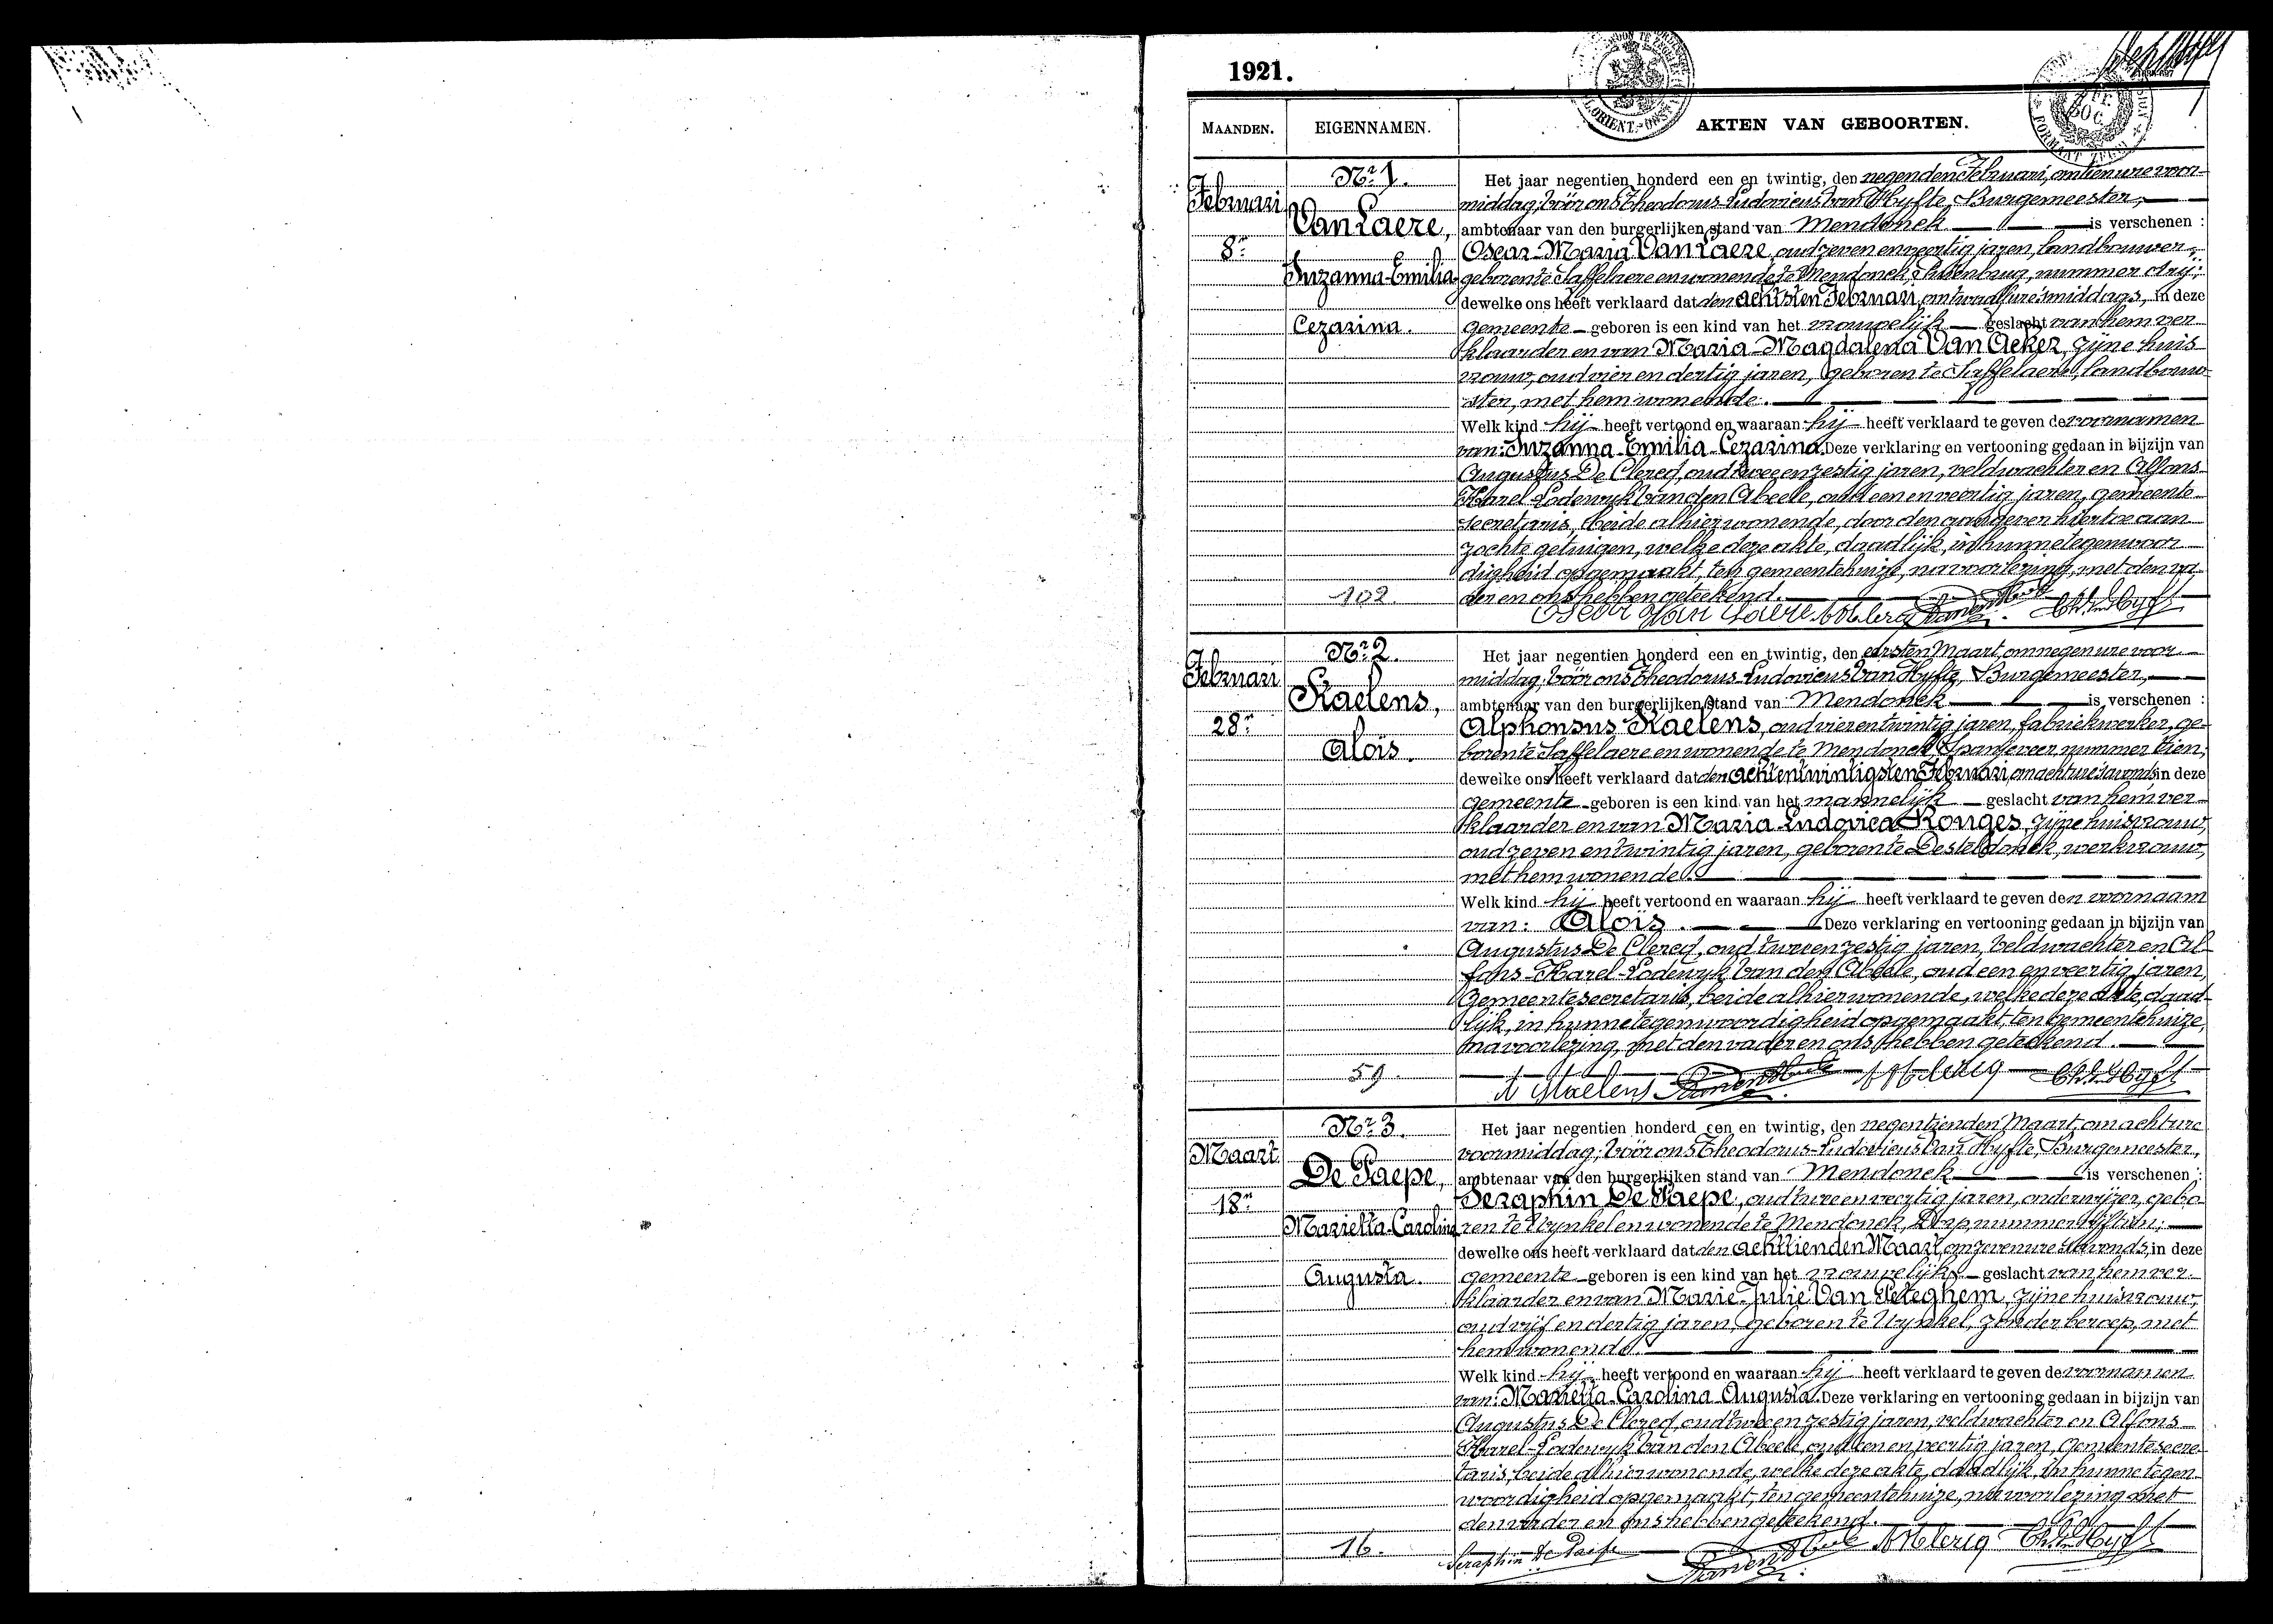 1921.
MAANDEN.
EIGENNAMEN.
AKTEN VAN GEBOORTEN.
Februari
8n
Nr 1.
Van Laere,
Suzanna-Emilia
Cezarina.
102
Het jaar negentien honderd een en twintig, den negenden Februari, om tien ure voor-
middag; vóór ons Theodorus-Ludovicus Van Hyfte, Burgemeester,
ambtenaar van den burgerlijken stand van Mendonck is verschenen :
Oscar-Maria Van Laere, oud zeven en veertig jaren, landbouwer,
geboren te Saffelaere en wonende te Mendonck, nummer drij;
dewelke ons heeft verklaard dat den achtsten Februari, om twaalf ure 's middags, in deze
gemeente geboren is een kind van het vrouwelijk geslacht van hem ver
klaarder en van Maria-Magdalena Van Acker, zijne huis
vrouw, oud vier en dertig jaren, geboren te Saffelaere, landbouw
ster, met hem wonende.
Welk kind hij heeft vertoond en waaraan hij heeft verklaard te geven de voornamen
van: Suzanna-Emilia-Cezarina. Deze verklaring en vertooning gedaan in bijzijn van
Augustus De Clercq, oud twee en zestig jaren, veldwachter en Alfons-
Karel-Lodewyk Van den Abeele, oud een en veertig jaren, gemeente
secretaris, beide alhier wonende, door den aangever hiertoe aan
zochte getuigen, welke deze akte, daadlijk, in hunne tegenwoor
digheid opgemaakt, ten gemeentehuize, na voorlezing, met den va
der en ons hebben geteekend.
Oscar Van Laere
Februari
28n
Nr 2.
Staelens,
Aloïs.
59.
Het jaar negentien honderd een en twintig, den eersten Maart, om negen ure voor
middag; vóór ons Theodorus-Ludovicus Van Hyfte, Burgemeester,
ambtenaar van den burgerlijken stand van Mendonck is verschenen :
Alphonsus Staelens, oud vier en twintig jaren, fabriekwerker, ge-
boren te Saffelaere en wonende te Mendonck, Spanjeveer, nummer tien;
dewelke ons heeft verklaard dat den achtentwintigsten Februari, om acht ure 's avonds, in deze
gemeente geboren is een kind van het mannelijk geslacht van hem ver-
klaarder en van Maria-Ludovica Ronges, zijne huisvrouw,
oud zeven en twintig jaren, geboren te Desteldonck, werkvrouw,
met hem wonende.
Welk kind hij heeft vertoond en waaraan hij heeft verklaard te geven den voornaam
van: Aloïs. Deze verklaring en vertooning gedaan in bijzijn van
Augustus De Clercq, oud twee en zestig jaren, veldwachter en Al-
fons-Karel-Lodewyk Van den Abeele, oud een en veertig jaren,
Gemeentesecretaris, beide alhier wonende, welke deze akte, daad-
lijk, in hunne tegenwoordigheid opgemaakt, ten Gemeentehuize,
na voorlezing, met den vader en ons hebben geteekend.
A Staelens
Maart
18n
Nr 3.
De Paepe,
Marietta-Carolina
Augusta.
16.
Het jaar negentien honderd een en twintig, den negentienden Maart, om acht ure
voormiddag; vóór ons Theodorus-Ludovicus Van Hyfte, Burgemeester,
ambtenaar van den burgerlijken stand van Mendonck is verschenen :
Seraphin De Paepe, oud twee en veertig jaren, onderwijzer, gebo-
ren te Wynkel en wonende te Mendonck, Dorp, nummer vijftien;
dewelke ons heeft verklaard dat den achttienden Maart, om zeven ure 's avonds, in deze
gemeente geboren is een kind van het vrouwelijk geslacht van hem ver-
klaarder en van Marie-Julie Van Peteghem, zijne huisvrouw,
oud vijf en dertig jaren, geboren te Wynkel, zonder beroep, met
hem wonende.
Welk kind hij heeft vertoond en waaraan hij heeft verklaard te geven de voornamen
van: Marietta-Carolina-Augusta. Deze verklaring en vertooning gedaan in bijzijn van
Augustus De Clercq, oud twee en zestig jaren, veldwachter en Alfons-
Karel-Lodewyk Van den Abeele, oud een en veertig jaren, Gemeentesecre-
taris, beide alhier wonende, welke deze akte, daadlijk, in hunne tegen-
woordigheid opgemaakt, ten gemeentehuize, na voorlezing met
den vader en ons hebben geteekend.
Seraphin De Paepe